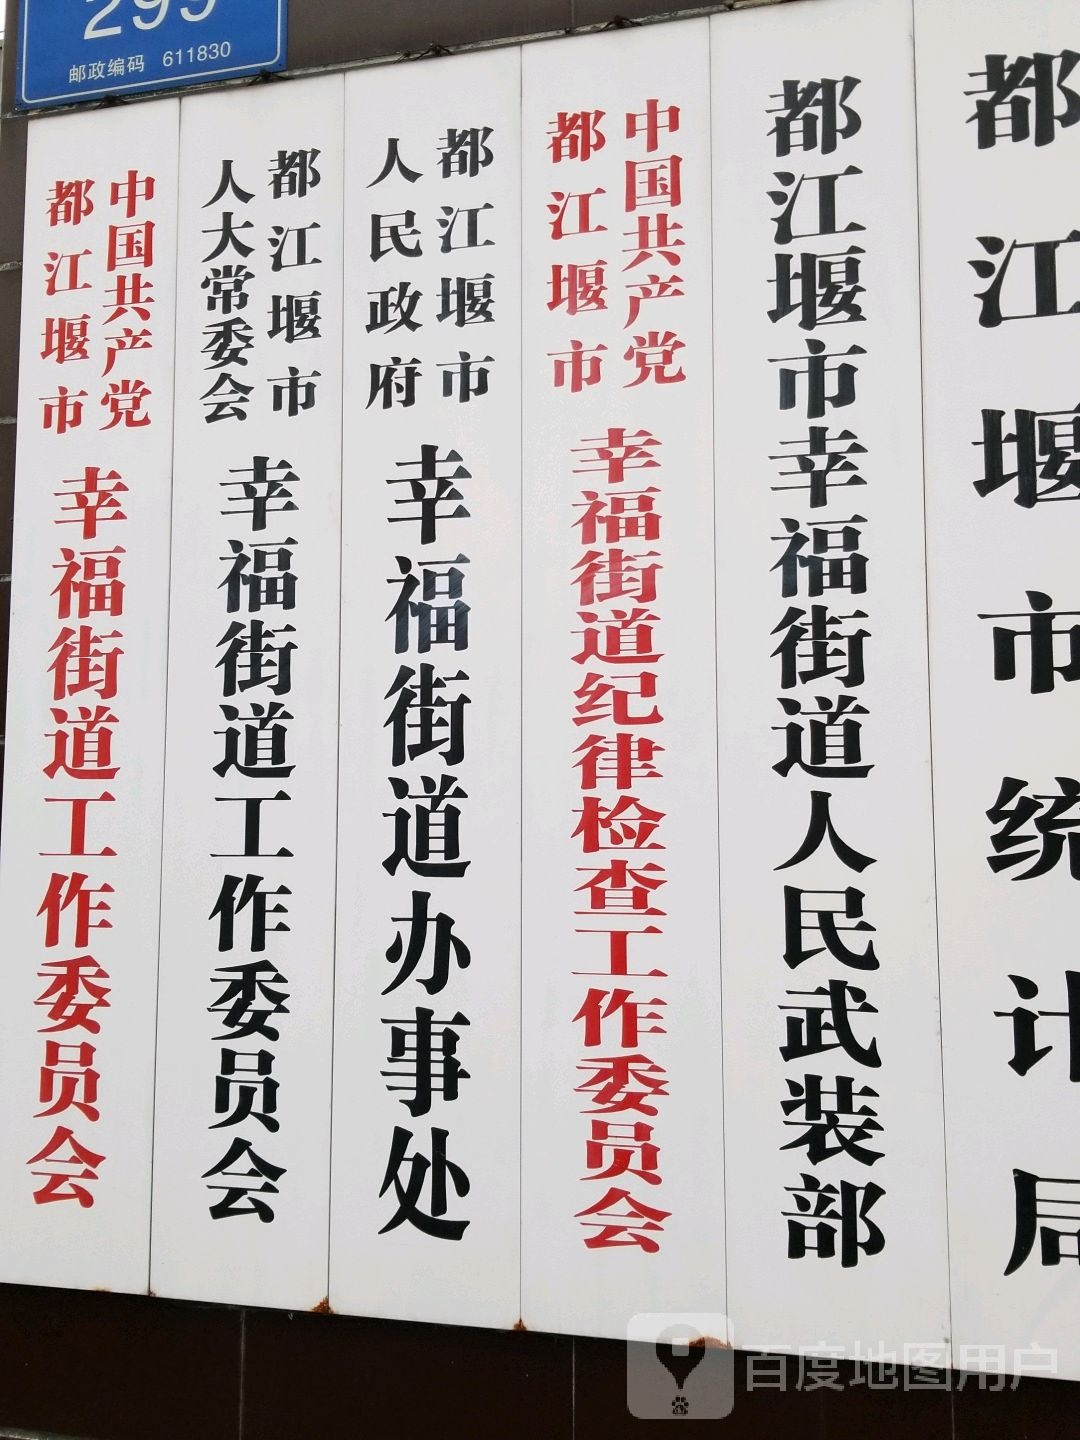 299
邮政编码 611830
中国共产党
都江堰市
幸福街道工作委员会
都江堰市
人大常委会
幸福街道工作委员会
都江堰市
人民政府
幸福街道办事处
中国共产党
都江堰市
幸福街道纪律检查工作委员会
都江堰市幸福街道人民武装部
都江堰市统计局
百度地图用户